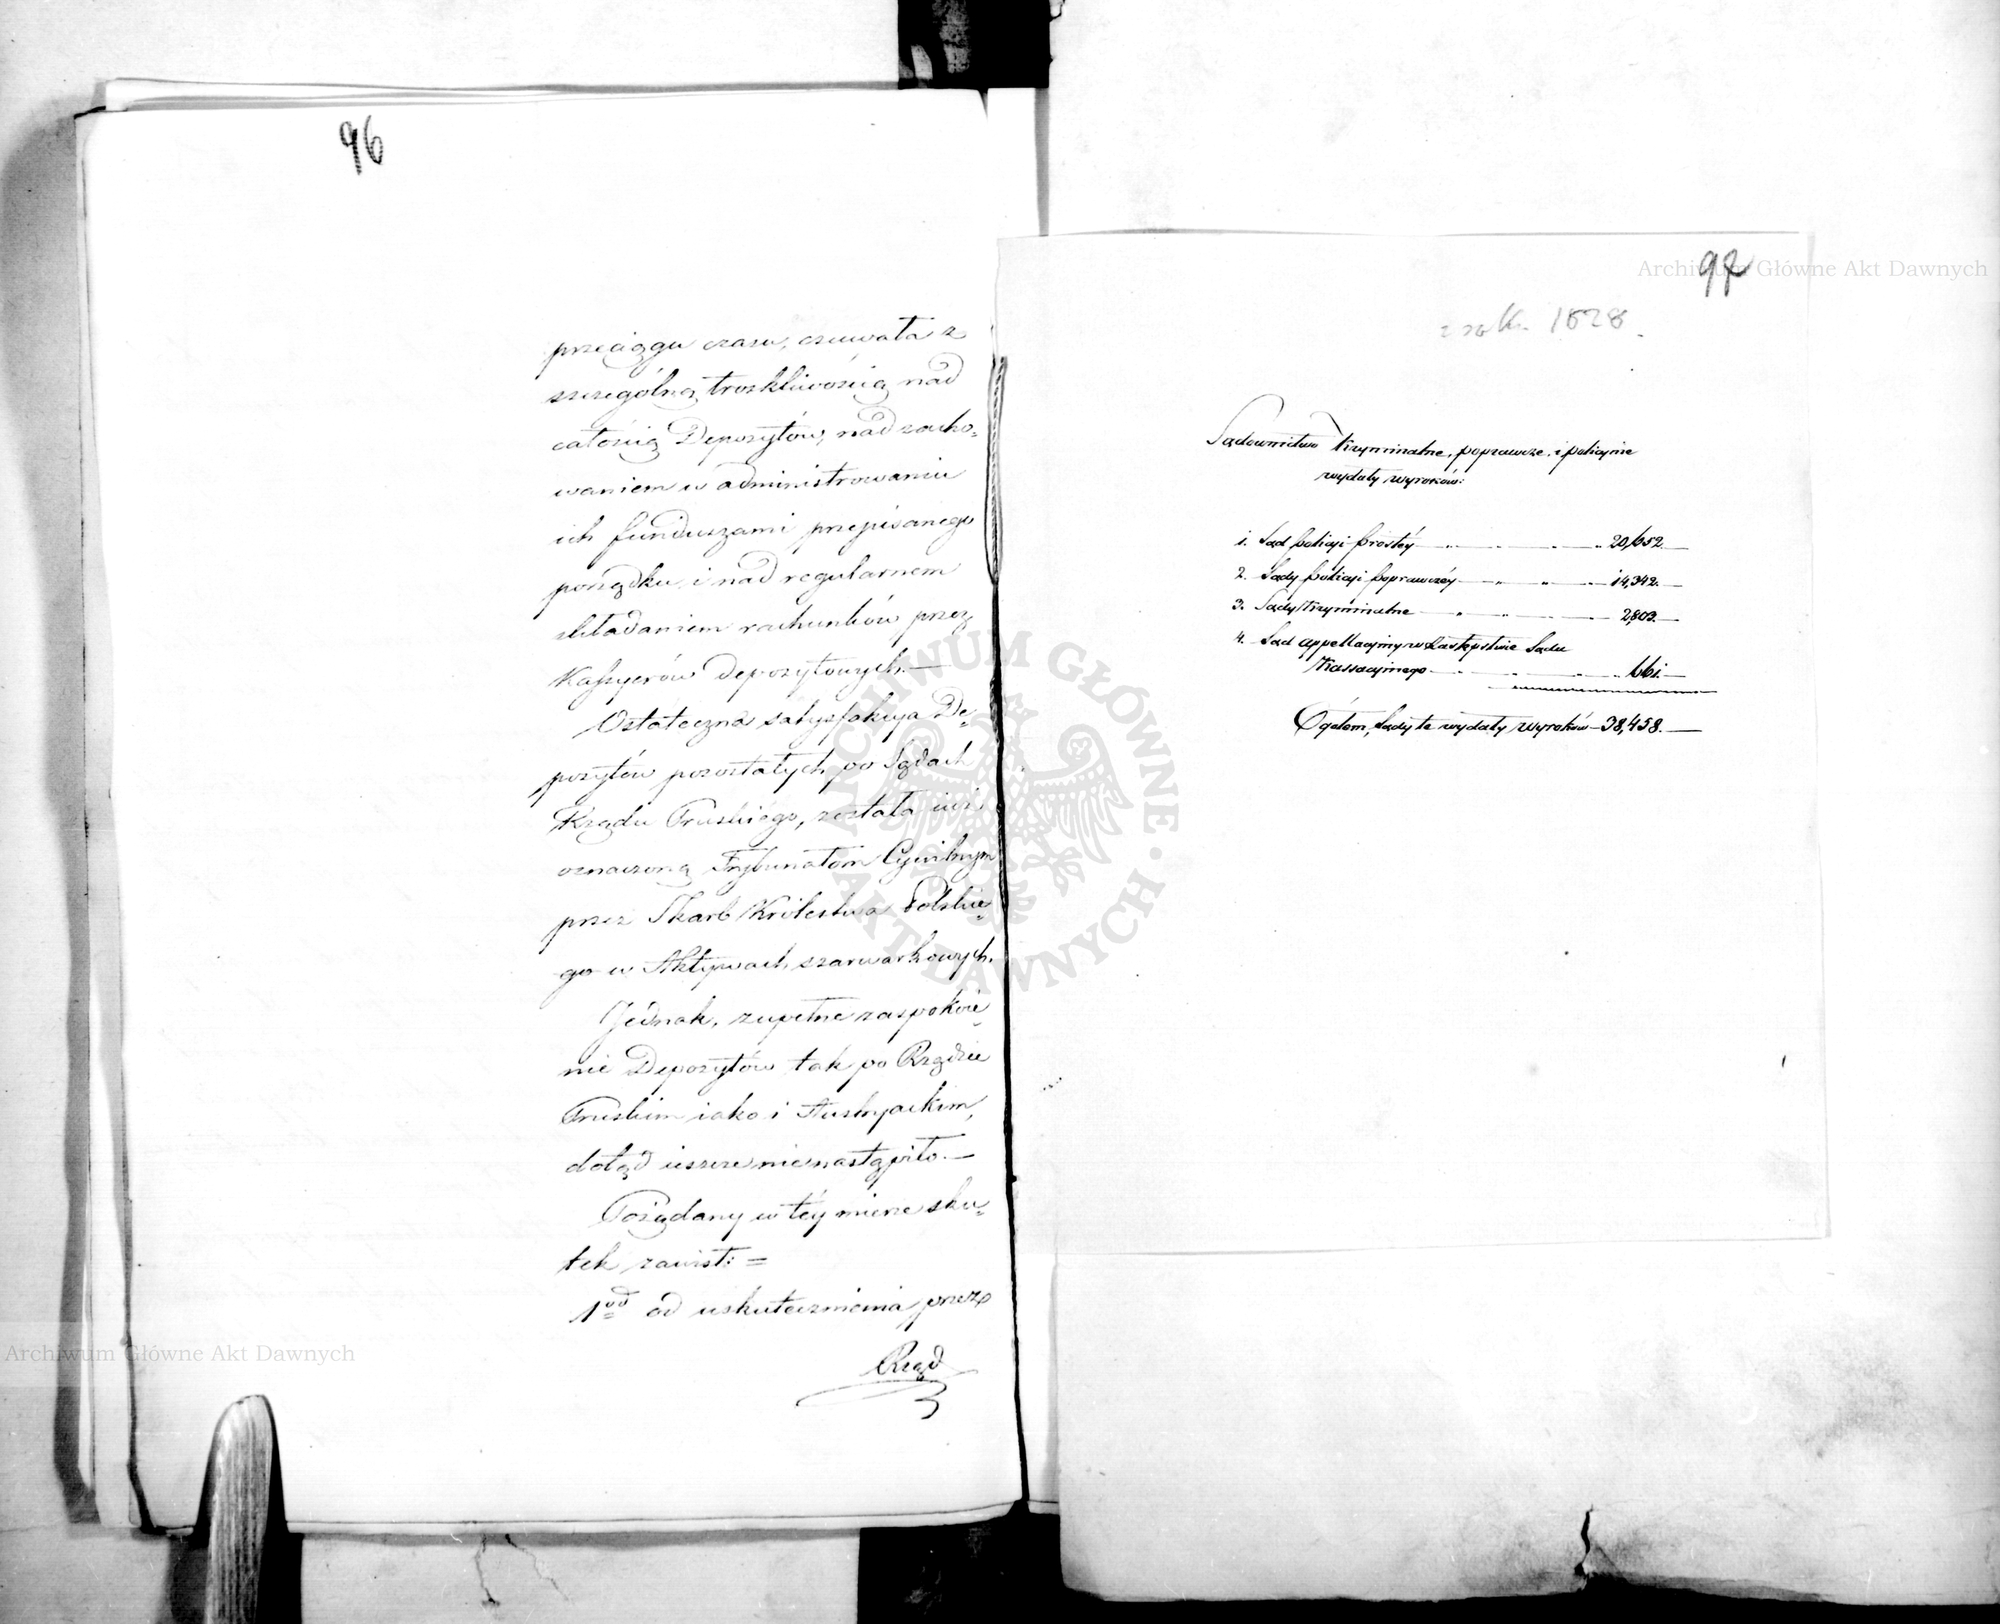 96
przeciągu czasu, czuwała z
szczególną troskliwością nad
całością Depozytów, nad zacho=
waniem w administrowaniu
ich funduszami przepisanego
porządku i nad regularnem
składaniem rachunków przez
Kassyerów depozytowych.—
Ostateczna satysfakcya De=
pozytów pozostałych po Sądach
Rządu Pruskiego, została iuż
oznaczoną Trybunałom Cywilnym
przez Skarb Królestwa Polskie=
go w Aktywach szarwarkowych.
Jednak, zupełne zaspokoie=
nie Depozytów tak po Rządzie
Pruskim iako i Austryackim,
dotąd ieszcze nie nastąpiło.—
Pożądany w téy mierze sku=
tek zawisł: =
1od od uskutecznienia przez
Rząd
97
z rok. 1828.
Sądownictwo Kryminalne, poprawcze, i policyine
wydały wyroków:
1. Sąd policyi prostéy — 20,652.—
2. Sądy policyi poprawczéy — 14,342.—
3. Sądy Kryminalne — 2,803.—
4. Sąd appellacyiny w zastępstwie Sądu
Kassacyinego — 661.—
Ogółem, Sądy te wydały wyroków — 38,458.—
Archiwum Główne Akt Dawnych
Archiwum Główne Akt Dawnych
ARCHIWUM GŁÓWNE · AKT DAWNYCH ·